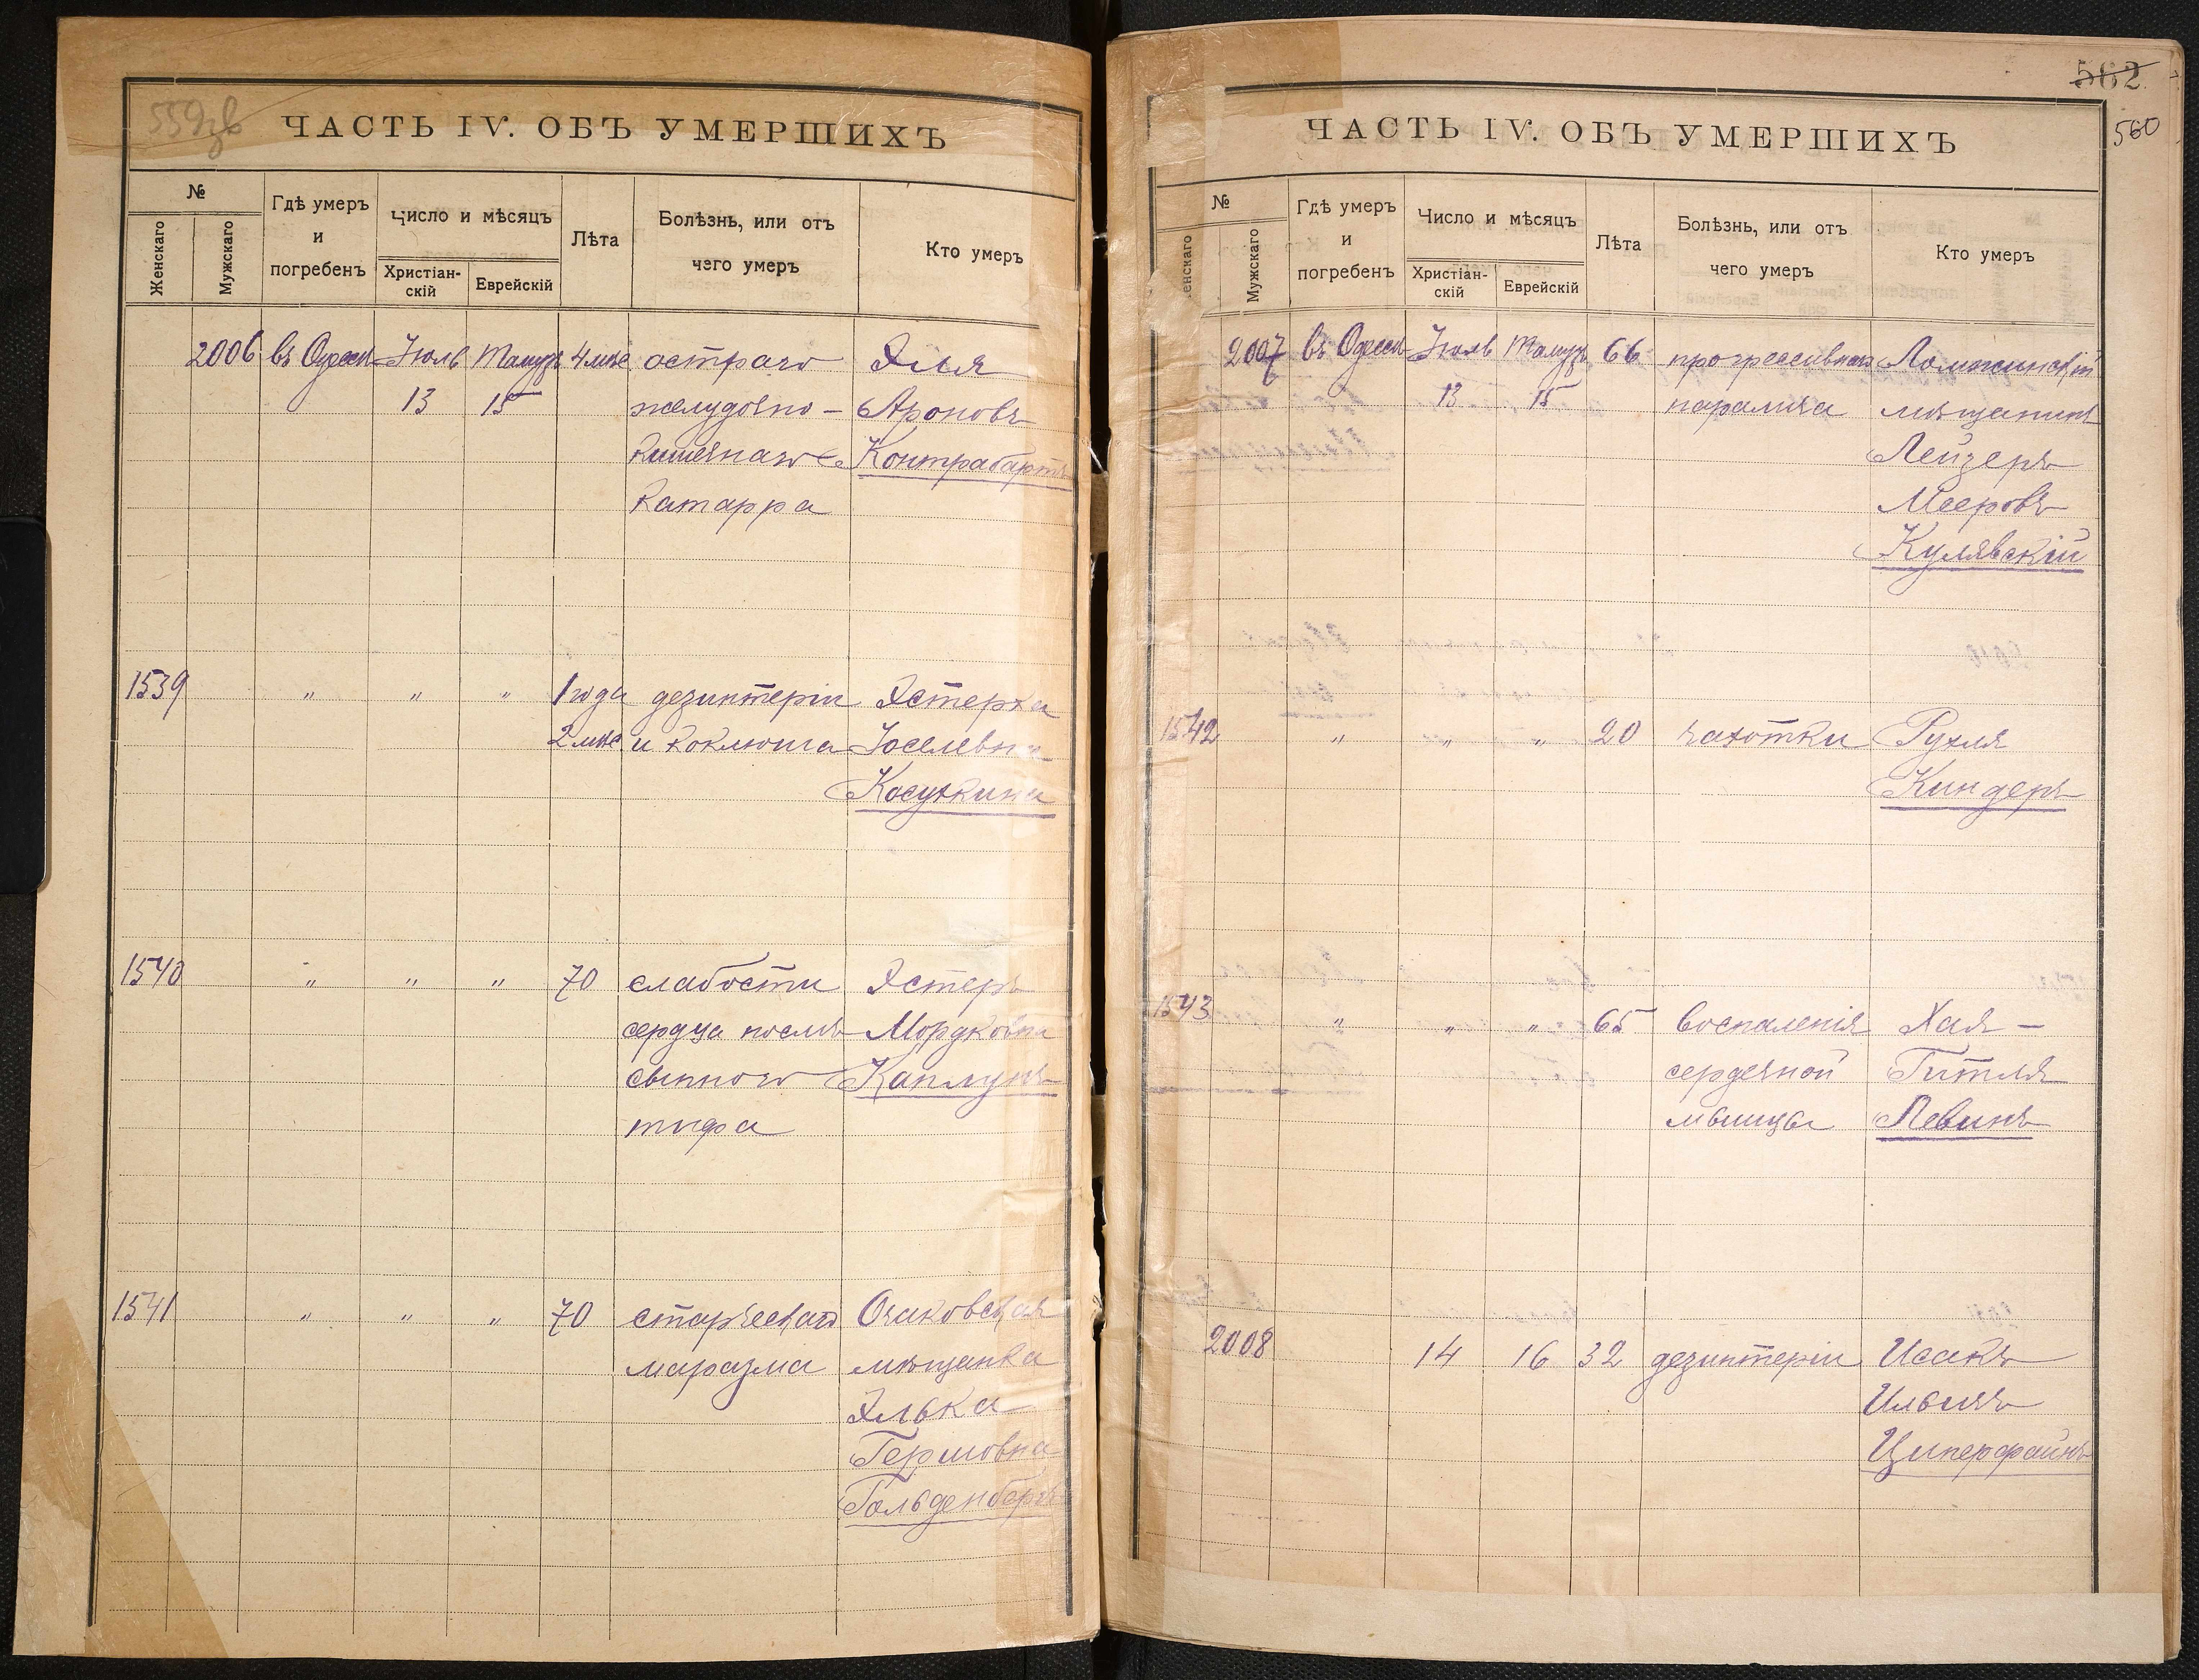 559зв
ЧАСТЬ IV. ОБЪ УМЕРШИХЪ
№
Женскаго
Мужскаго
Гдѣ умеръ
и
погребенъ
Число и мѣсяцъ
Христіан-
скій
Еврейскій
Лѣта
Болѣзнь, или отъ
чего умеръ
Кто умеръ
2006 въ Одессѣ Іюль Тамузъ 4 мѣс остраго Эля
13 15 желудочно- Ароновъ
кишечнаго Контрабартъ
катарра
1539 " " " 1 года дезинтеріи Эстерка
2 мѣс и коклюша Іоселевна
Косушкина
1540 " " " 70 слабости Эстеръ
сердца послѣ Мордковна
сыпного Каплунъ
тифа
1541 " " " 70 старческаго Очаковская
маразма мѣщанка
Элька
Гершовна
Гольденбергъ
562
560
ЧАСТЬ IV. ОБЪ УМЕРШИХЪ
№
енскаго
Мужскаго
Гдѣ умеръ
и
погребенъ
Число и мѣсяцъ
Христіан-
скій
Еврейскій
Лѣта
Болѣзнь, или отъ
чего умеръ
Кто умеръ
2007 въ Одессѣ Іюль Тамузъ 66 прогрессивнаго Ломжинскій
13 15 паралича мѣщанинъ
Лейзеръ
Мееровъ
Кулявскій
1542 " " " 20 чахотки Рухля
Киндеръ
1543 " " " 65 воспаленія Хая-
сердечной Гитля
мышцы Левинъ
2008 14 16 32 дезинтеріи Исакъ
Ильичъ
Циперфайнъ